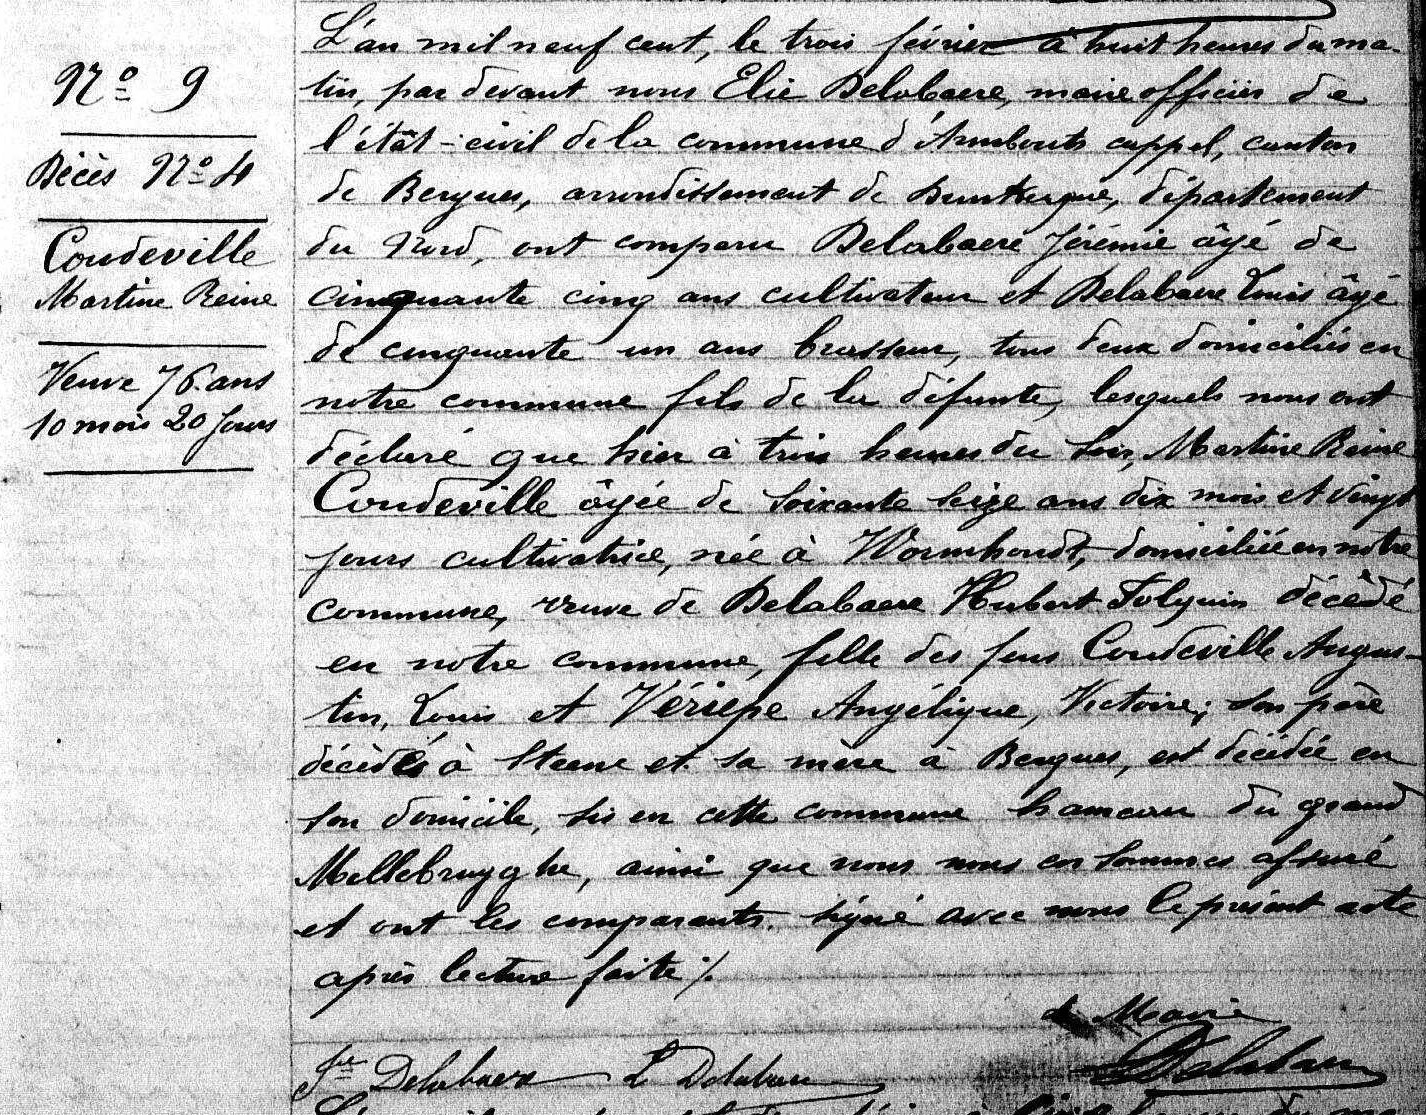 N° 9
Décès N° 4
Coudeville
Martine Reine
Veuve 76 ans
10 mois 20 jours
L'an mil neuf cent, le trois février à huit heures du ma-
tin, par devant nous Elie Delabaere, maire officier de
l'état-civil de la commune d'Armbouts cappel, canton
de Bergues, arrondissement de Dunkerque, département
du Nord, ont comparu Delabaere Jérémie âgé de
cinquante cinq ans cultivateur et Delabaere Louis âgé
de cinquante un ans brasseur, tous deux domiciliés en
notre commune fils de la défunte, lesquels nous ont
déclaré que hier à trois heures du soir, Martine Reine
Coudeville âgée de soixante seize ans dix mois et vingt
jours cultivatrice, née à Wormhoudt, domiciliée en notre
commune, veuve de Delabaere Hubert Folquin décédé
en notre commune, fille des feus Coudeville Augus-
tin, Louis et Vériepe Angélique, Victoire; son père
décèdés à Steene et sa mère à Bergues, est décédée en
son domicile, sis en cette commune hameau du grand
Mellebrugghe, ainsi que nous nous en sommes assuré
et ont les comparants signé avec nous le présent acte
après lecture faite ./.
Le Maire
Jie Delabaere L Delabaere Delabaere